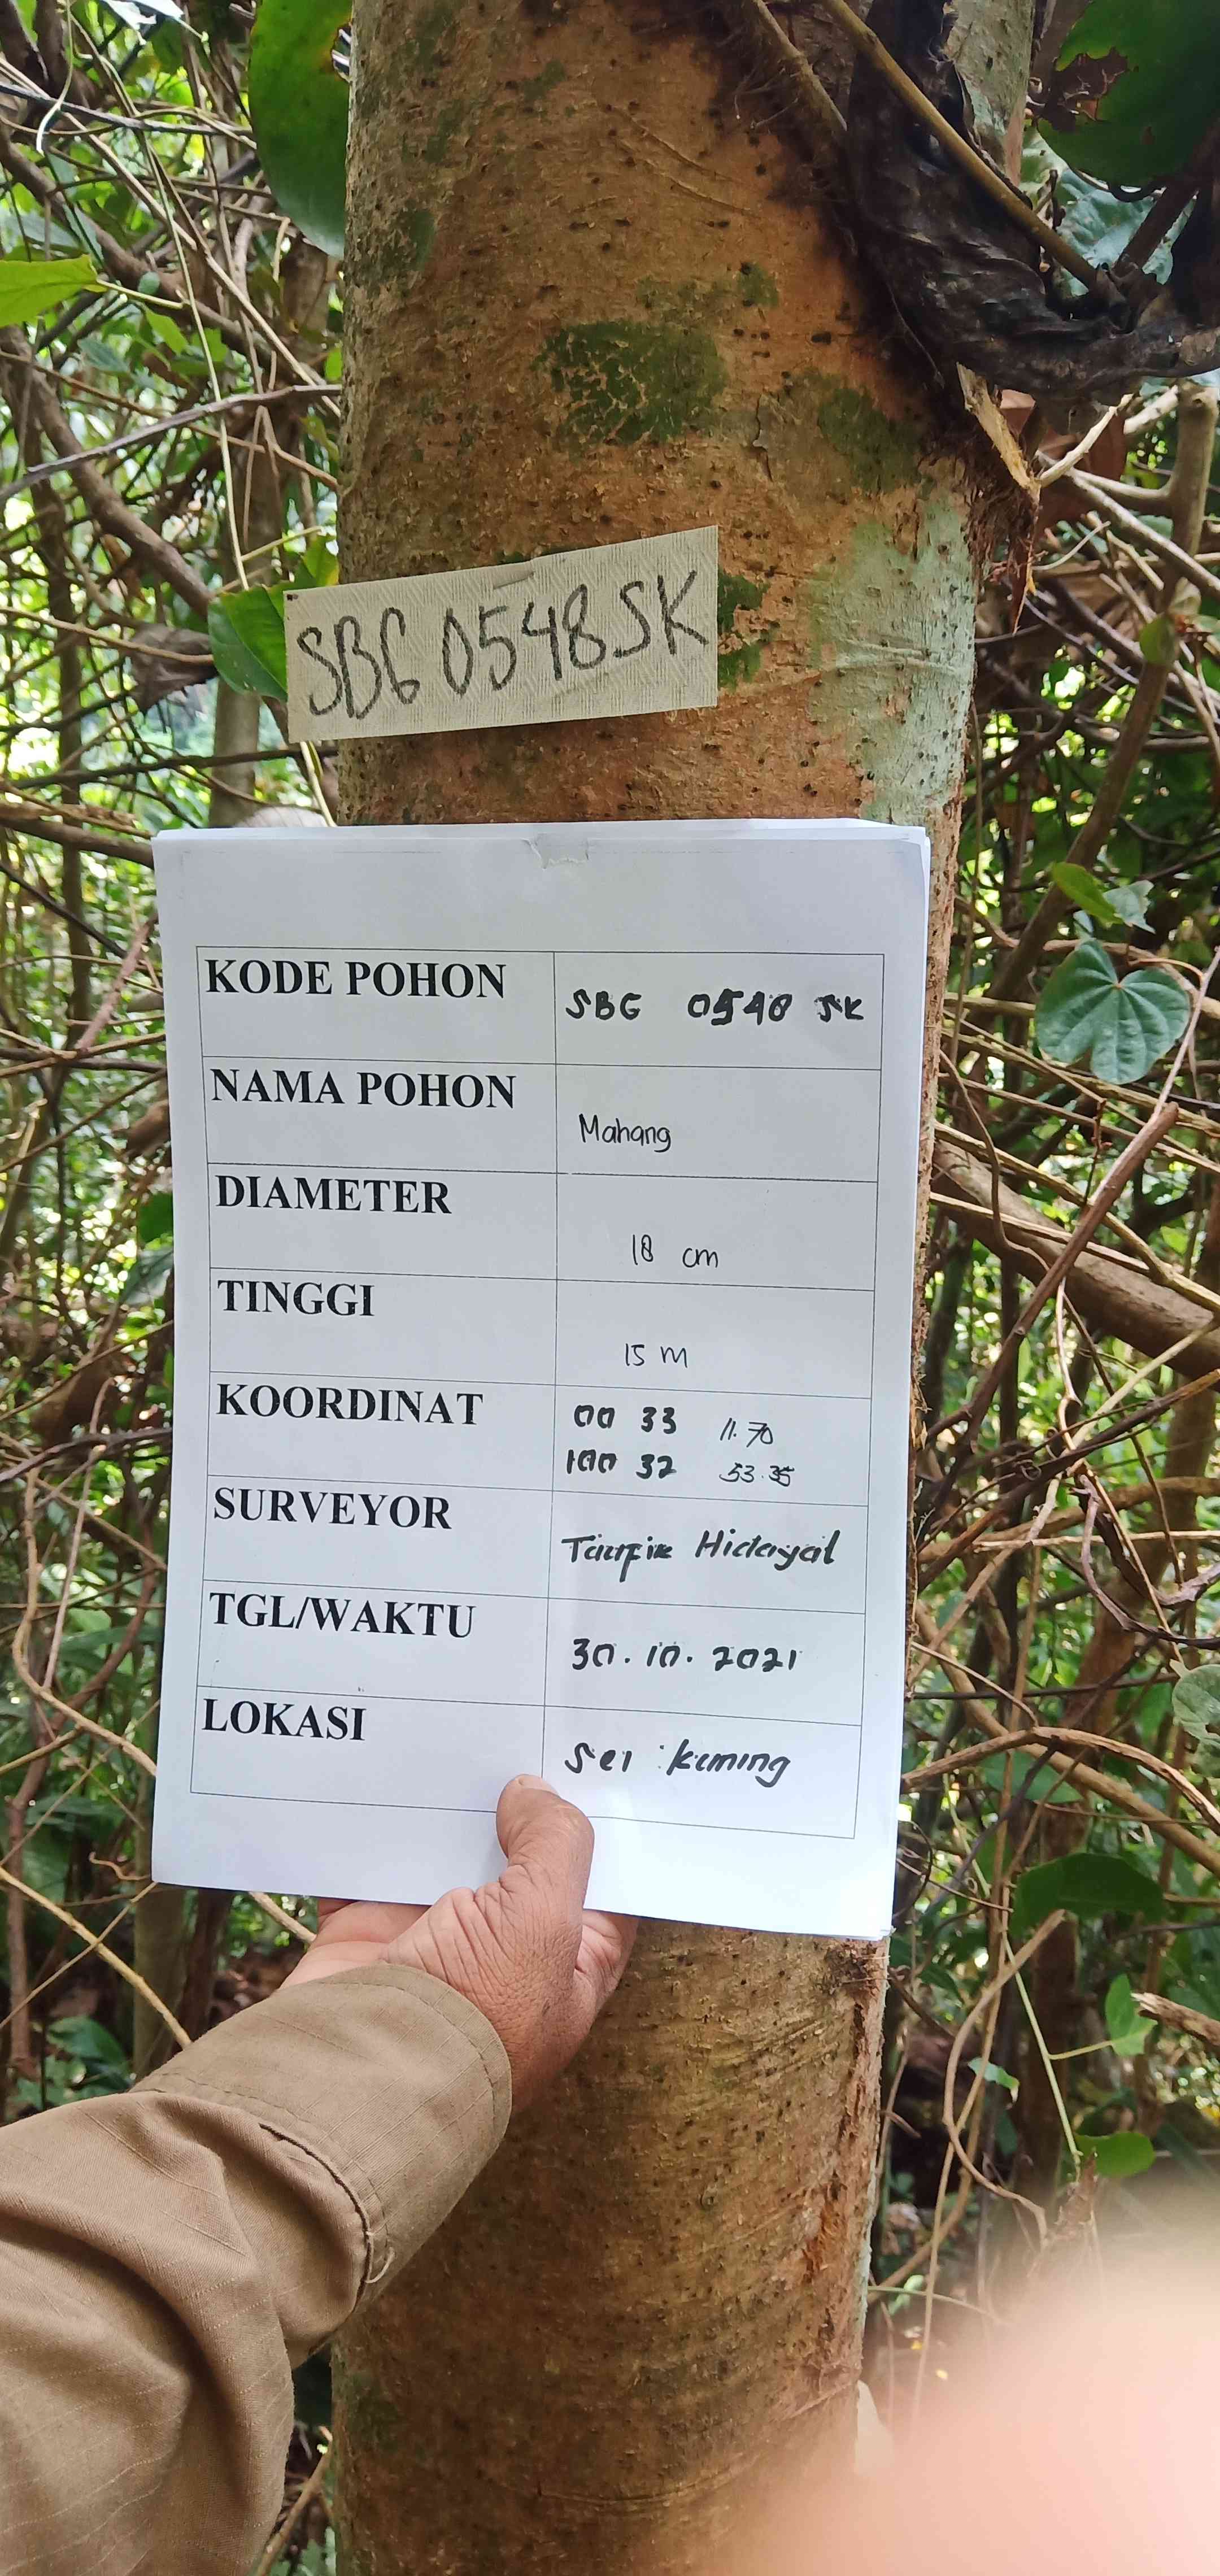 SBG 0548 SK
KODE POHON SBG 0548 SK
NAMA POHON Mahang
DIAMETER 18 cm
TINGGI 15 m
KOORDINAT 00 33 11.70
100 32 53.35
SURVEYOR Taufik Hidayat
TGL/WAKTU 30.10.2021
LOKASI Sei kuning